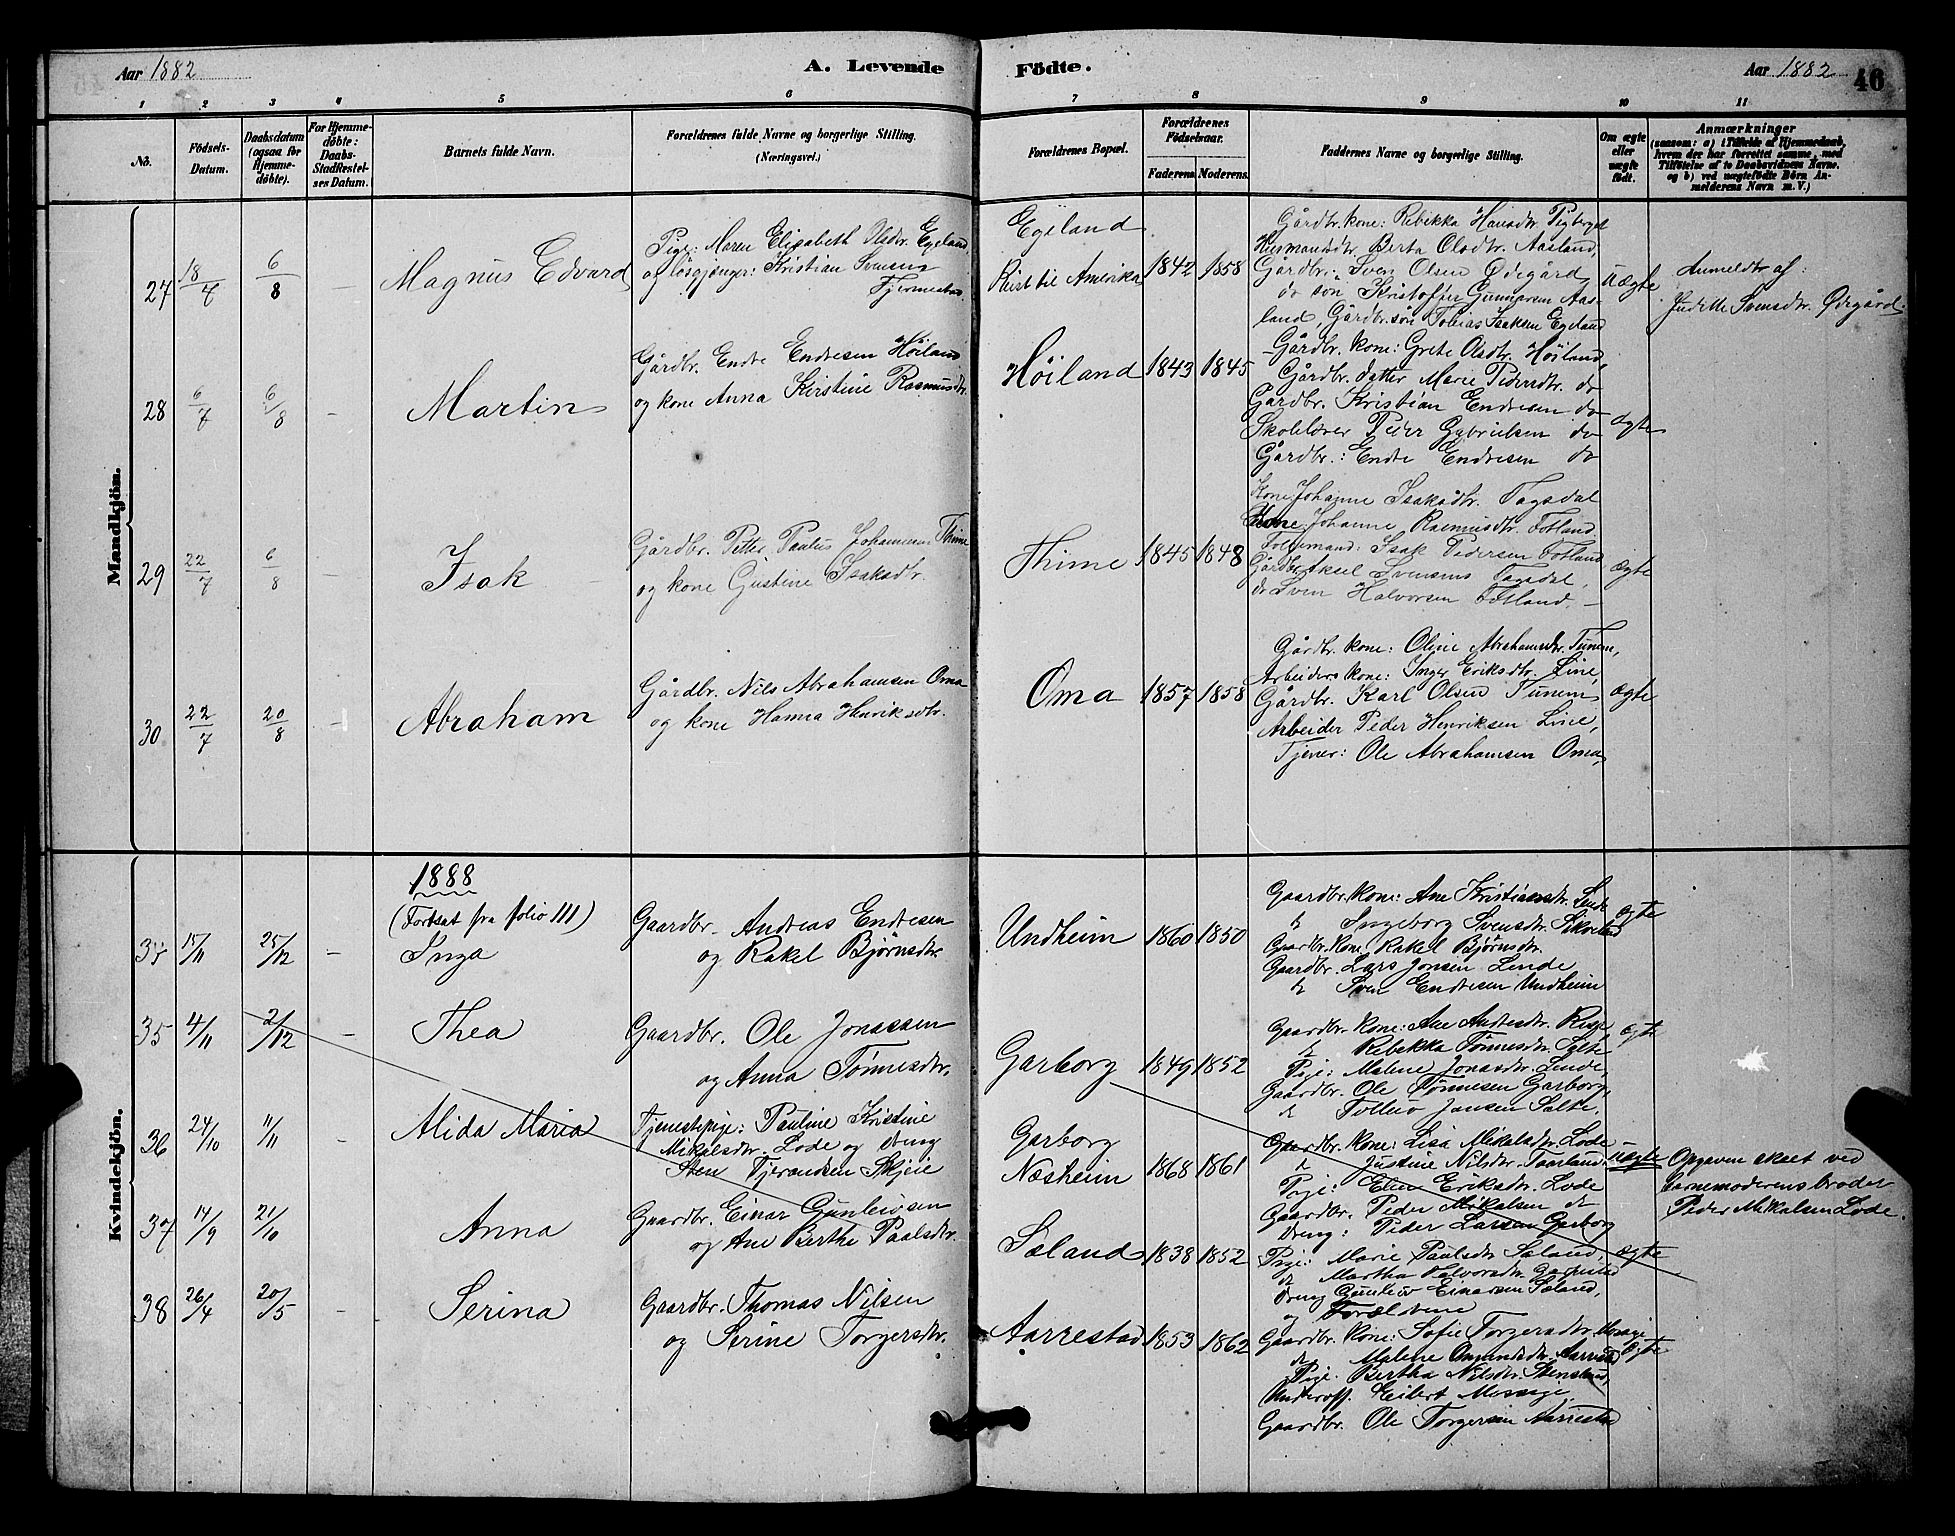 Aar 1882
A. Levende
Födte.
Aar 1882
46
1 2 3 4 5 6 7 8 9 10 11
No.
Födsels-
Datum.
Daabsdatum
(ogsaa for
Hjemme-
döbte).
For Hjemme-
döbte:
Daabs-
Stadfæstel-
ses Datum.
Barnets fulde Navn.
Forældrenes fulde Navne og borgerlige Stilling.
(Næringsvei.)
Forældrenes Bopæl.
Forældrenes
Födselsaar.
Faderens.
Moderens.
Faddernes Navne og borgerlige Stilling.
Om ægte
eller
uægte
födt.
Anmærkninger
(saasom: a) i Tilfælde af Hjemmedaab,
hvem der har forrettet samme, med
Tilföielse af to Daabsvidners Navne.
og b) ved uægtefödte Börn An-
melderens Navn m. V.)
Mandkjön.
27
18/7
6/8
–
Magnus Edvard
Pige: Maren Elisabeth Olsdtr. Egeland
og løsgjænger: Kristian Svensen
Tjermestad
Egeland
Reist til Amerika
1842
1858
Gårdbr. kone: Rebekka Hansdtr.
Husmandsdtr. Berta Olsdtr. Aasland,
Gårdbr. Sven Olsen Ødegård
do søn Kristoffer Gunnarsen Aas-
land, Gårdbr. søn Tobias Isaksen Egeland
uægte
Anmeldt af:
Judithe Svensdtr. Ødegård.
28
6/7
6/8
–
Martin
Gårdbr. Endre Endresen Høiland
og kone Anna Kirstine Rasmusdtr.
Høiland
1843
1845
Gårdbr. kone: Grete Olsdtr. Høiland,
Gårdbr. datter Marie Pedersdtr. do
Gårdbr. Kristian Endresen do
Skolelærer Peder Gabrielsen do
Gårdbr.: Endre Endresen do
ægte
29
22/7
6/8
–
Isak
Gårdbr. Petter Paulus Johannesen Thime
og kone Gustine Isaksdtr.
Thime
1845
1848
Kone Johanne Isaksdtr. Tagsdal
Kone: Johanne Rasmusdtr. Fotland
Isak Pedersen Fotland
Gårdbr. Aksel Svensen Tagsdal,
do Sven Halvorsen Fotland. –
ægte
30
22/7
20/8
–
Abraham
Gårdbr. Nils Abrahamsen Oma
og kone Hanna Henriksdtr.
Oma
1857
1858
Gårdbr. kone: Oline Abrahamsdtr. Tunem,
Arbeiders kone: Inger Eriksdtr. Line,
Gårdbr. Karl Olsen Tunem
Arbeider Peder Henriksen Line,
Tjener: Ole Abrahamsen Oma,
ægte
Kvindekjön.
1888
(Fortsat fra folio 111)
34
15/11
25/12
–
Inga
Gaardbr. Andreas Endresen
og Rakel Bjørnsdtr.
Undheim
1860
1850
Gaardbr. kone: Ane Kristiansdtr. Lende
Ingeborg Svensdtr.
Gaardbr. kone Rakel Bjørnsdtr.
Gaardbr. Lars Jonsen Lende
Sven Endresen Undheim
ægte
35
4/11
2/12
–
Thea
Gaardbr. Ole Jonassen
og Anna Tønnesdtr.
Garborg
1849
1852
Gaardbr. kone: Ane Andresdtr.
Rebekka Tønnesdtr. Salte
Pige: Malene Jonasdtr. Lende,
Gaardbr. Ole Tønnesen Garborg,
Tollev Jansen Salte,
ægte
36
24/10
11/11
–
Alida Maria
Tjenestepige: Pauline Kristine
Mikalsdtr. Lode og dreng
Sten Tjerandsen Skjeie
Garborg
Næsheim
1868
1861
Gaardbr. kone: Lisa Mikalsdtr. Lode –
Justine Nilsdtr. Taarland
Pige: Elen Eriksdtr. Lode
Gaardbr. Peder Mikalsen do
Dreng: Peder Larsen Garborg
uægte
Opgaven skeet ved
barnemoderens broder
Peder Mikalsen Lode.
37
14/9
21/10
Anna
Gaardbr. Einar Gunleivsen
og Ane Berthe Paalsdtr.
Sæland
1838
1852
Pige: Marie Paulsdtr Sæland,
Martha Halvorsdtr. Garpestad
Dreng Gunleiv Einarsen Sæland,
og Forældrene
ægte
38
26/4
20/5
–
Serina
Gaardbr. Thomas Nilsen
og Serine Torgersdtr.
Aarrestad
1853
1862
Gaardbr. kone: Sofie Torgersdtr. Mossige
Malene Omundsdtr. Aarrestad
Pige. Bertha Nilsdtr.
Underoff. Eilert Mossige,
Gaardbr. Ole Torgersen Aarrestad
ægte